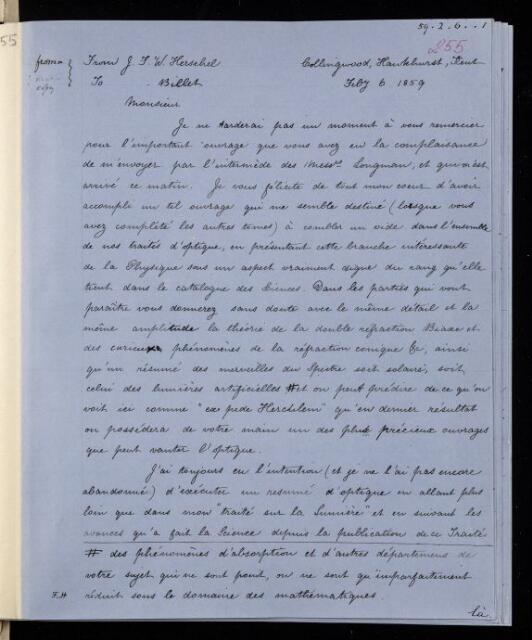 59.2.6..1
255
55
from From J. F. W. Herschel Collingwood, Hawkhurst, Kent
To Billet Feby 6 1859
Monsieur
Je ne tarderai pas un moment à vous remercier
pour l'important ouvrage que vous avez eu la complaisance
de m'envoyer par l'intermède des Messrs Longman, et qui m'est
arrivé ce matin. Je vous félicite de tout mon coeur d'avoir
accompli un tel ouvrage qui me semble destiné (lorsque vous
avez complété les autres tomes) à combler un vide dans l'ensemble
de nos traités d'optique, en présentant cette branche intéressante
de la Physique sous un aspect vraiment digne du rang qu'elle
tient dans le catalogue des Siences. Dans les parties qui vont
paraître vous donnerez sans doute avec le même détail et la
même amplitude la théorie de la double réfraction Biaxe et
des curieux phénomènes de la réfraction conique &c, ainsi
qu'un résumé des merveilles du Spectre soit solaire, soit
celui des lumières artificielles # et on peut prédire de ce qu'on
voit ici comme "ex pede Herculem" qu'en dernier résultat
on possédera de votre main un des plus précieux ouvrages
que peut vanter l'optique.
J'ai toujours eu l'intention (et je ne l'ai pas encore
abandonné) d'exécuter un resumé d'optique en allant plus
loin que dans mon "traité sur la Lumière" et en suivant les
avances qu'a fait la Science depuis la publication de ce Traité
# des phénomènes d'absorption et d'autres départemens de
votre sujet qui ne sont point, ou ne sont qu'imparfaitement
F.H réduit sous le domaine des mathématiques.
là